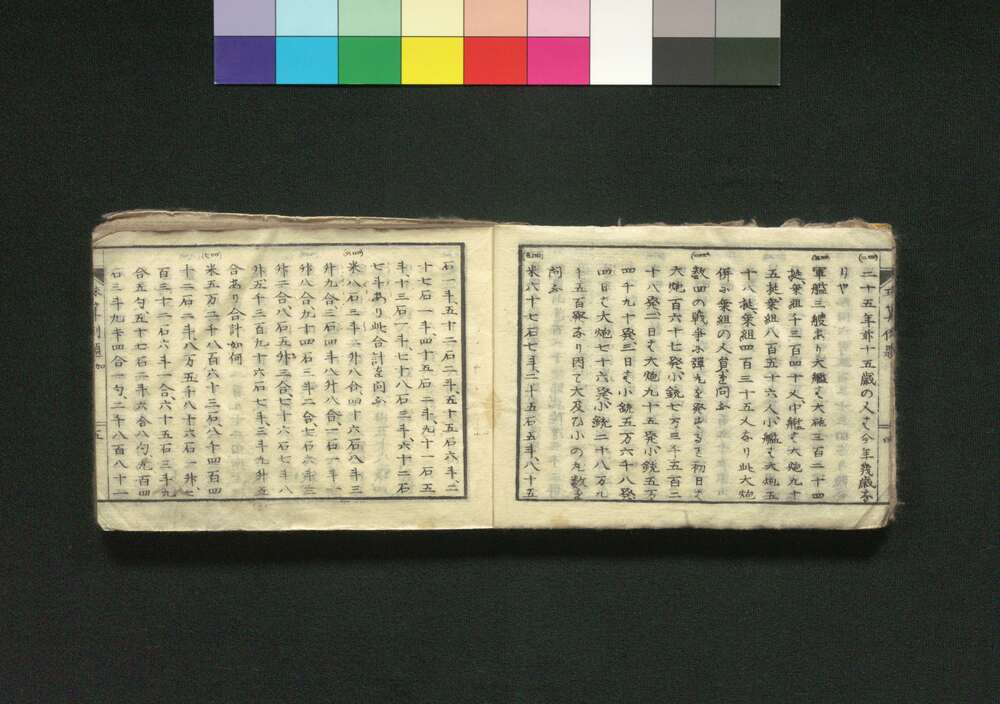 二十五年前十五歳の人も今年幾歳な
りや
軍艦三艘あり大艦も大砲三百二十四
挺乗組千三百四十人、中艦も大炮九十
五挺乗組八百五十六人、小艦も大炮五
十八挺乗組四百三十五人なり此大炮
併ふ乗組の人員を問ふ
数回の戦争ふ弾丸を発出る初日も
大炮百六十七発小銃七万三千五百二
十八発二日も大炮九百十五発小銃五万
四千九十発三日も小銃五万六千八発
四日も大炮七十六発小銃二十八万九
千五百発なり因て大及ひ小の丸数を
問ふ
米六十七石七斗、二十五石五斗、八十五
石一斗、五十二石二斗、五十五石六斗、二
十七石一斗四十五石二斗、九十一石五
斗、十三石一斗、七十八石三斗六十二石
七斗あり此合計を問ふ
米八石三斗二升八合四十六石八斗三
升九合三石四斗八升八合一石一斗一
升八合九十四石三斗二合、七石六斗三
升二合八石五升三合、七十六石七斗八
升五千三百九十六石七斗、三斗九升五
合あり合計如何
米五万二千八百六十三石八斗四百四
十二石二斗、八万五千八十七石一升、七
百三十二石六斗一合、六十五石三斗九
合五勺、五十七石二斗六合八勺、九百四
石三斗九升四合一勺、二千八百八十一